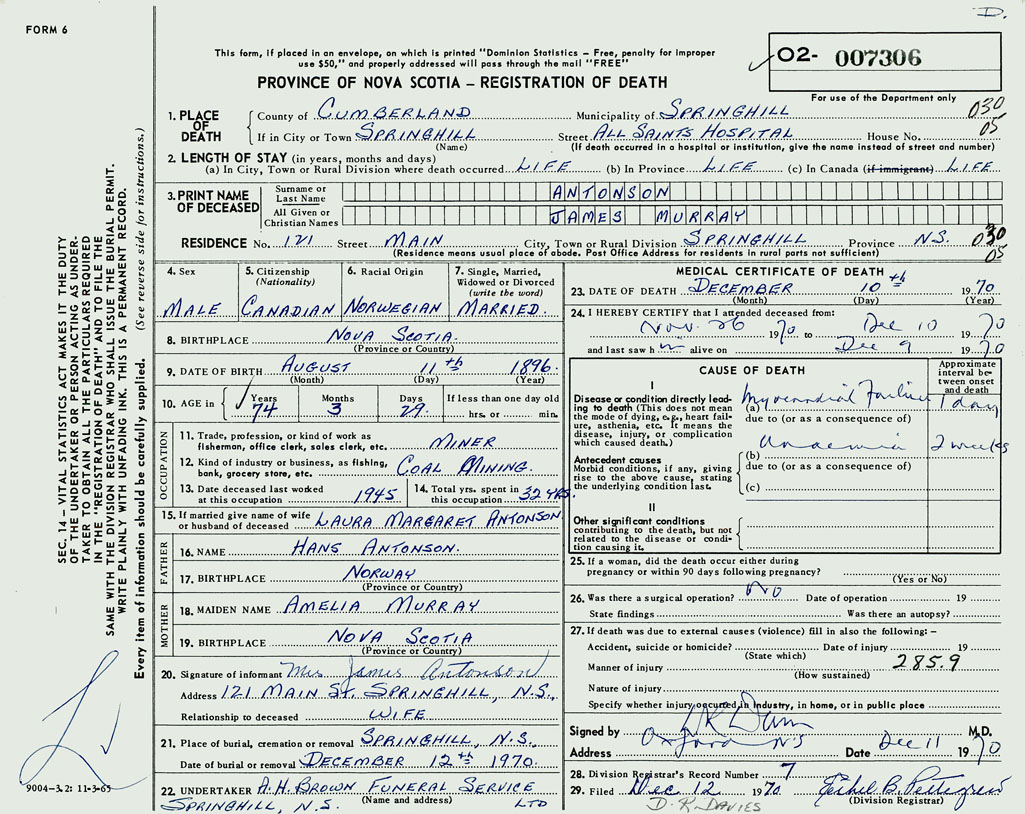 D.
FORM 6
This form, if placed in an envelope, on which is printed "Dominion Statistics – Free, penalty for improper
use $50," and properly addressed will pass through the mail "FREE"
02- 007306
PROVINCE OF NOVA SCOTIA – REGISTRATION OF DEATH
For use of the Department only
1. PLACE OF DEATH
County of CUMBERLAND Municipality of SPRINGHILL 030
If in City or Town SPRINGHILL Street ALL SAINTS HOSPITAL House No. 05
(Name) (If death occurred in a hospital or institution, give the name instead of street and number)
2. LENGTH OF STAY (in years, months and days)
(a) In City, Town or Rural Division where death occurred LIFE (b) In Province LIFE (c) In Canada (if immigrant) LIFE
3. PRINT NAME OF DECEASED
Surname or Last Name ANTONSON
All Given or Christian Names JAMES MURRAY
RESIDENCE No. 121 Street MAIN City, Town or Rural Division SPRINGHILL Province N.S. 030
(Residence means usual place of abode. Post Office Address for residents in rural parts not sufficient) 05
4. Sex MALE
5. Citizenship (Nationality) CANADIAN
6. Racial Origin NORWEGIAN
7. Single, Married, Widowed or Divorced (write the word) MARRIED.
8. BIRTHPLACE NOVA SCOTIA.
(Province or Country)
9. DATE OF BIRTH AUGUST 11th 1896.
(Month) (Day) (Year)
10. AGE in Years 74 Months 3 Days 29. If less than one day old hrs. or min.
OCCUPATION
11. Trade, profession, or kind of work as
fisherman, office clerk, sales clerk, etc. MINER
12. Kind of industry or business, as fishing,
bank, grocery store, etc. COAL MINING.
13. Date deceased last worked
at this occupation 1945
14. Total yrs. spent in
this occupation 32 YRS.
15. If married give name of wife
or husband of deceased LAURA MARGARET ANTONSON
FATHER
16. NAME HANS ANTONSON.
17. BIRTHPLACE NORWAY
(Province or Country)
MOTHER
18. MAIDEN NAME AMELIA MURRAY
19. BIRTHPLACE NOVA SCOTIA
(Province or Country)
20. Signature of informant Mrs James Antonson
Address 121 MAIN St. SPRINGHILL, N.S.
Relationship to deceased WIFE
21. Place of burial, cremation or removal SPRINGHILL, N.S.
Date of burial or removal DECEMBER 12th 1970.
22. UNDERTAKER A.H. BROWN FUNERAL SERVICE
(Name and address) LTD
SPRINGHILL, N.S.
MEDICAL CERTIFICATE OF DEATH
23. DATE OF DEATH DECEMBER 10th 1970
(Month) (Day) (Year)
24. I HEREBY CERTIFY that I attended deceased from:
Nov. 26 1970 to Dec 10 1970
and last saw h im alive on Dec 9 1970
CAUSE OF DEATH
Approximate interval between onset and death
I
Disease or condition directly leading to death (This does not mean the mode of dying, e.g., heart failure, asthenia, etc. It means the disease, injury, or complication which caused death.)
(a) Myocardial Failure 1 day
due to (or as a consequence of)
Anaemia 2 weeks
Antecedent causes
Morbid conditions, if any, giving rise to the above cause, stating the underlying condition last.
(b)
due to (or as a consequence of)
(c)
II
Other significant conditions
contributing to the death, but not related to the disease or condition causing it.
25. If a woman, did the death occur either during
pregnancy or within 90 days following pregnancy?
(Yes or No)
26. Was there a surgical operation? No Date of operation 19
State findings Was there an autopsy?
27. If death was due to external causes (violence) fill in also the following: –
Accident, suicide or homicide? Date of injury 19
(State which)
Manner of injury 285.9
(How sustained)
Nature of injury
Specify whether injury occurred in industry, in home, or in public place
Signed by M.D.
Address Oxford N S Date Dec 11 1970
28. Division Registrar's Record Number 7
29. Filed Dec 12 1970
(Division Registrar)
D. R. DAVIES
SEC. 14 – VITAL STATISTICS ACT MAKES IT THE DUTY
OF THE UNDERTAKER OR PERSON ACTING AS UNDERTAKER
TO OBTAIN ALL THE PARTICULARS REQUIRED
IN THE "REGISTRATION OF DEATH" AND TO FILE THE
SAME WITH THE DIVISION REGISTRAR WHO SHALL ISSUE THE BURIAL PERMIT.
WRITE PLAINLY WITH UNFADING INK. THIS IS A PERMANENT RECORD.
Every item of information should be carefully supplied. (See reverse side for instructions.)
9004-3.2: 11-3-65